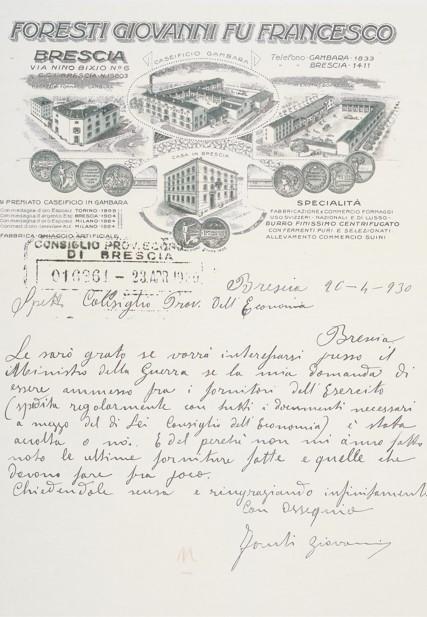 FORESTI GIOVANNI FU FRANCESCO
BRESCIA
VIA NINO BIXIO Nº 6
C.C.I. BRESCIA N. 15603
CASEIFICIO GAMBARA
Telefono - GAMBARA - 1833
" - BRESCIA - 1411
CASA IN BRESCIA
PREMIATO CASEIFICIO IN GAMBARA
Con medaglia d'oro Espos. TORINO - 1898
Con medaglia d'argento Esp. BRESCIA - 1904
MILANO - 1906
MILANO - 1907
FABBRICA GHIACCIO ARTIFICIALE
SPECIALITÀ
FABBRICAZIONE E COMMERCIO FORMAGGI
USO SVIZZERI - NAZIONALI E DI LUSSO -
BURRO FINISSIMO CENTRIFUGATO
CON FERMENTI PURI E SELEZIONATI
ALLEVAMENTO COMMERCIO SUINI
CONSIGLIO PROV. ECONO
DI BRESCIA
23 APR 1930
Brescia 20-4-930
Spett. Consiglio Prov. dell'Economia
Brescia
Le sarò grato se vorrà interessarsi presso il
Ministro della Guerra se la mia domanda di
essere ammesso fra i fornitori dell'Esercito
(spedita regolarmente con tutti i documenti necessari
a mezzo del di Lei Consiglio dell'Economia) è stata
accolta o no. E del perchè non mi ànno fatto
noto le ultime forniture fatte e quelle che
devono fare fra poco.
Chiedendole scusa e ringraziando infinitamente
Con ossequio
Foresti Giovanni